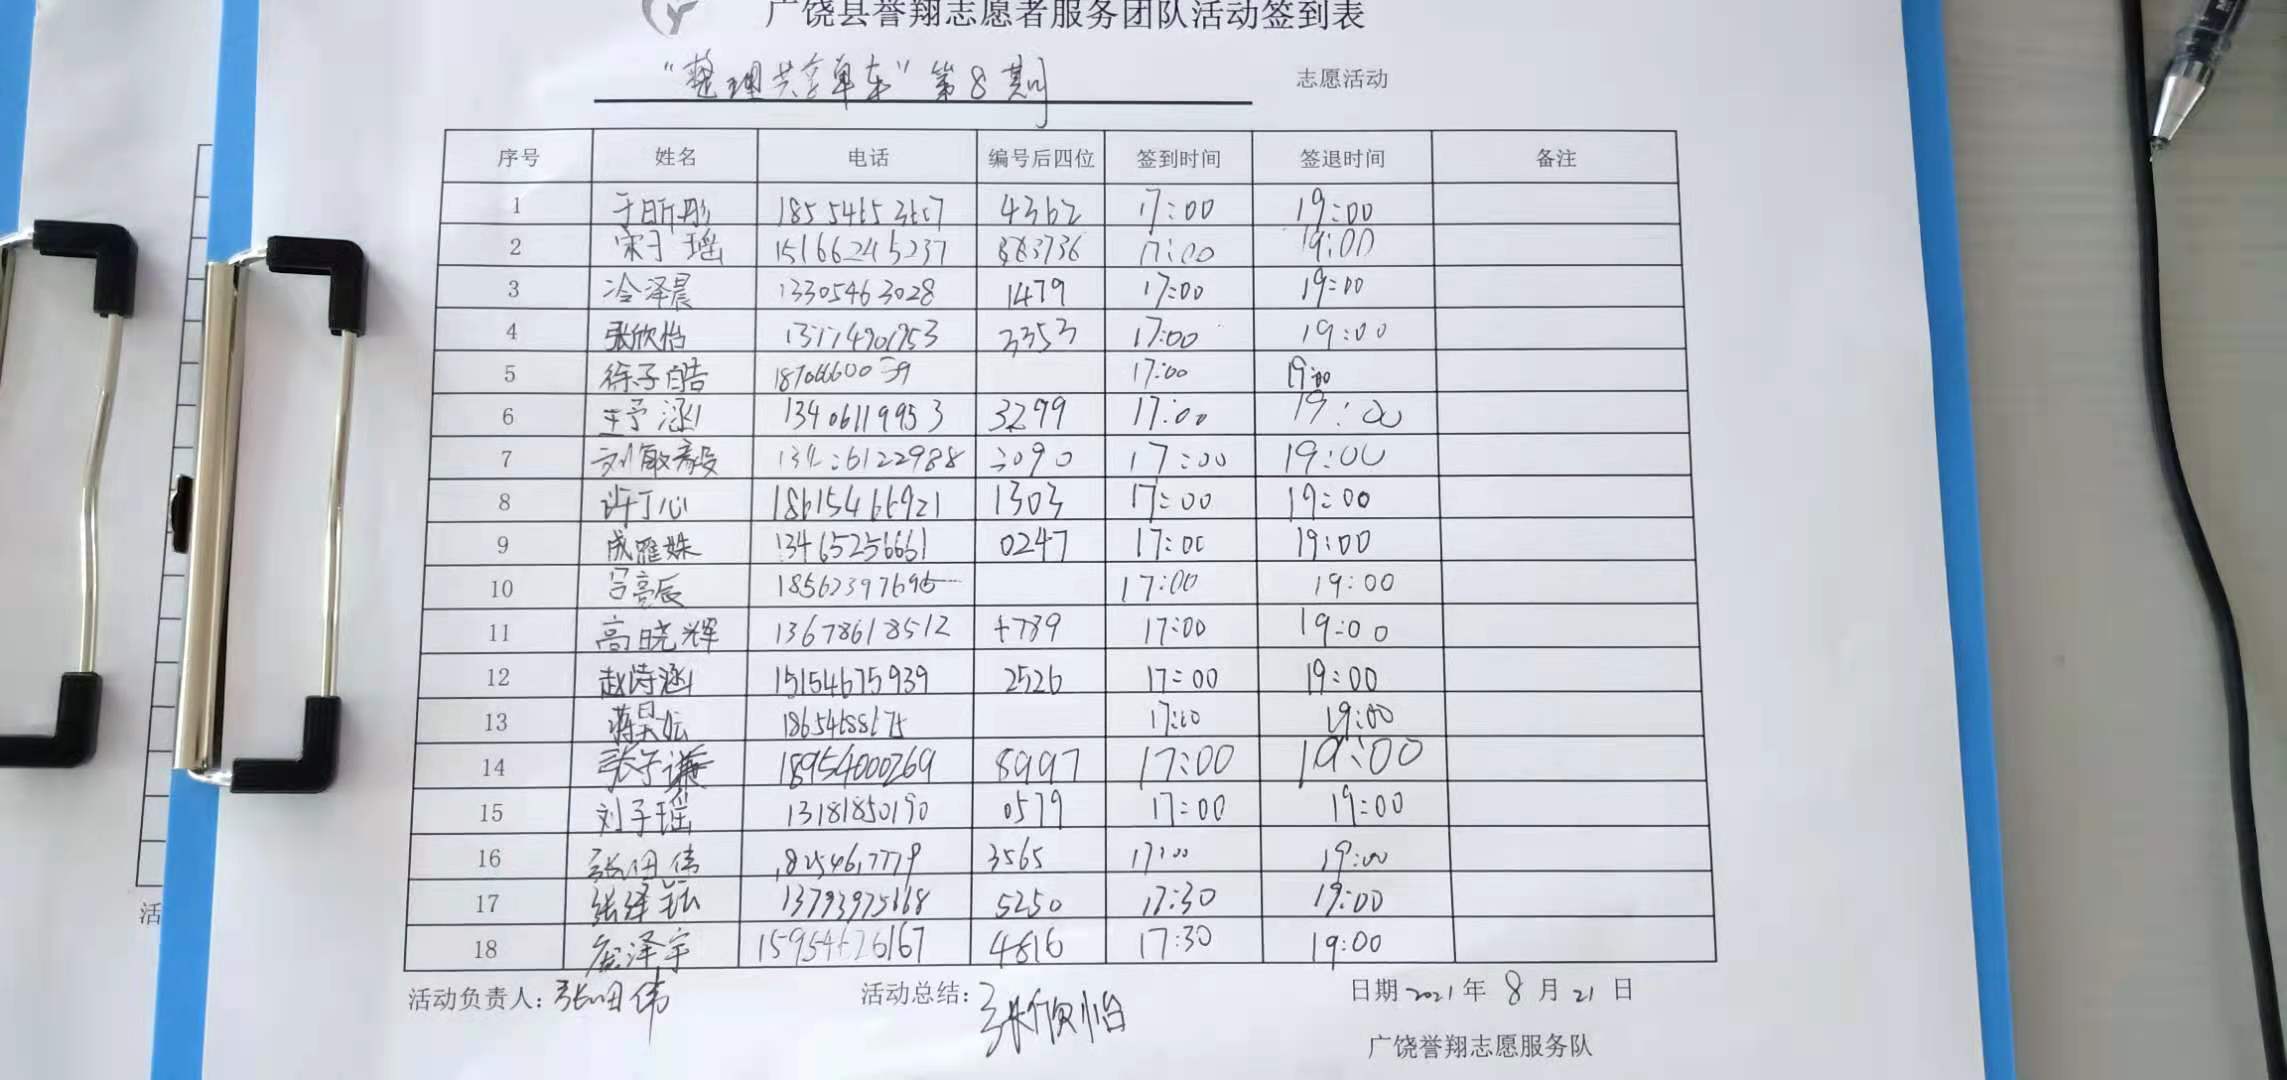 广饶县誉翔志愿者服务团队活动签到表
“整理共享单车”第8期 志愿活动
序号 姓名 电话 编号后四位 签到时间 签退时间 备注
1 于昕彤 4362 17:00 19:00
2 宋子瑶 15166245237 17:00 19:00
3 冷泽晨 13305463028 1479 17:00 19:00
4 张欣怡 3353 17:00 19:00
5 徐子皓 17:00 19:00
6 王予涵 13406119953 3299 17:00 19:00
7 刘敏毅 3090 17:00 19:00
8 许丁心 1303 17:00 19:00
9 成雁姝 13465256661 0247 17:00 19:00
10 吕亮辰 17:00 19:00
11 高晓辉 13678618512 17:00 19:00
12 赵诗涵 15154675939 2526 17:00 19:00
13 蒋昊 17:00 19:00
14 张子谦 18954000269 8997 17:00 19:00
15 刘子瑶 13181850190 0579 17:00 19:00
16 张 伟 3565 17:00 19:00
17 张泽 5250 17:30 19:00
18 泽宇 15954626167 4816 17:30 19:00
活动负责人：张 伟 活动总结：张欣怡 日期 2021 年 8 月 21 日
广饶誉翔志愿服务队
活